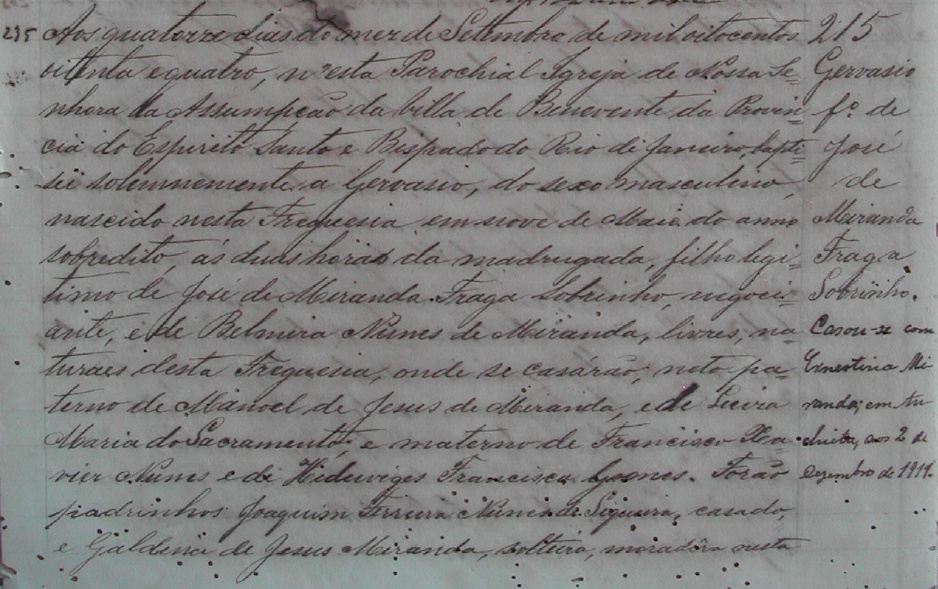 215 Aos quatorze dias do mez de Settembro de mil oitocentos
oitenta e quatro, n'esta Parochial Igreja de Nossa Se=
nhora da Assumpção da Villa de Benevente da Provin=
cia do Espirito Santo e Bispado do Rio de Janeiro, bapti=
sei solemnemente a Gervasio, do sexo masculino,
nascido nesta Freguesia em nove de Maio do anno
sobredito, ás duas horas da madrugada, filho legi=
timo de José de Miranda Fraga Sobrinho, negoci=
ante, e de Belmira Nunes de Miranda, livres, na=
turaes desta Freguesia, onde se casárão; neto pa=
terno de Manoel de Jesus de Miranda, e de
Maria do Sacramento; e materno de Francisco Xa=
vier Nunes e de Hideviges Francisca Gomes. Forão
padrinhos Joaquim Ferreira Nunes de Siqueira, casado,
e Galdena de Jesus Miranda, solteira, moradôra nesta
215
Gervasio
fº. de
José
de
Miranda
Fraga
Sobrinho.
Casou-se com
Ernestina Mi
randa; em An
chieta, aos 2 de
Dezembro de 1911.